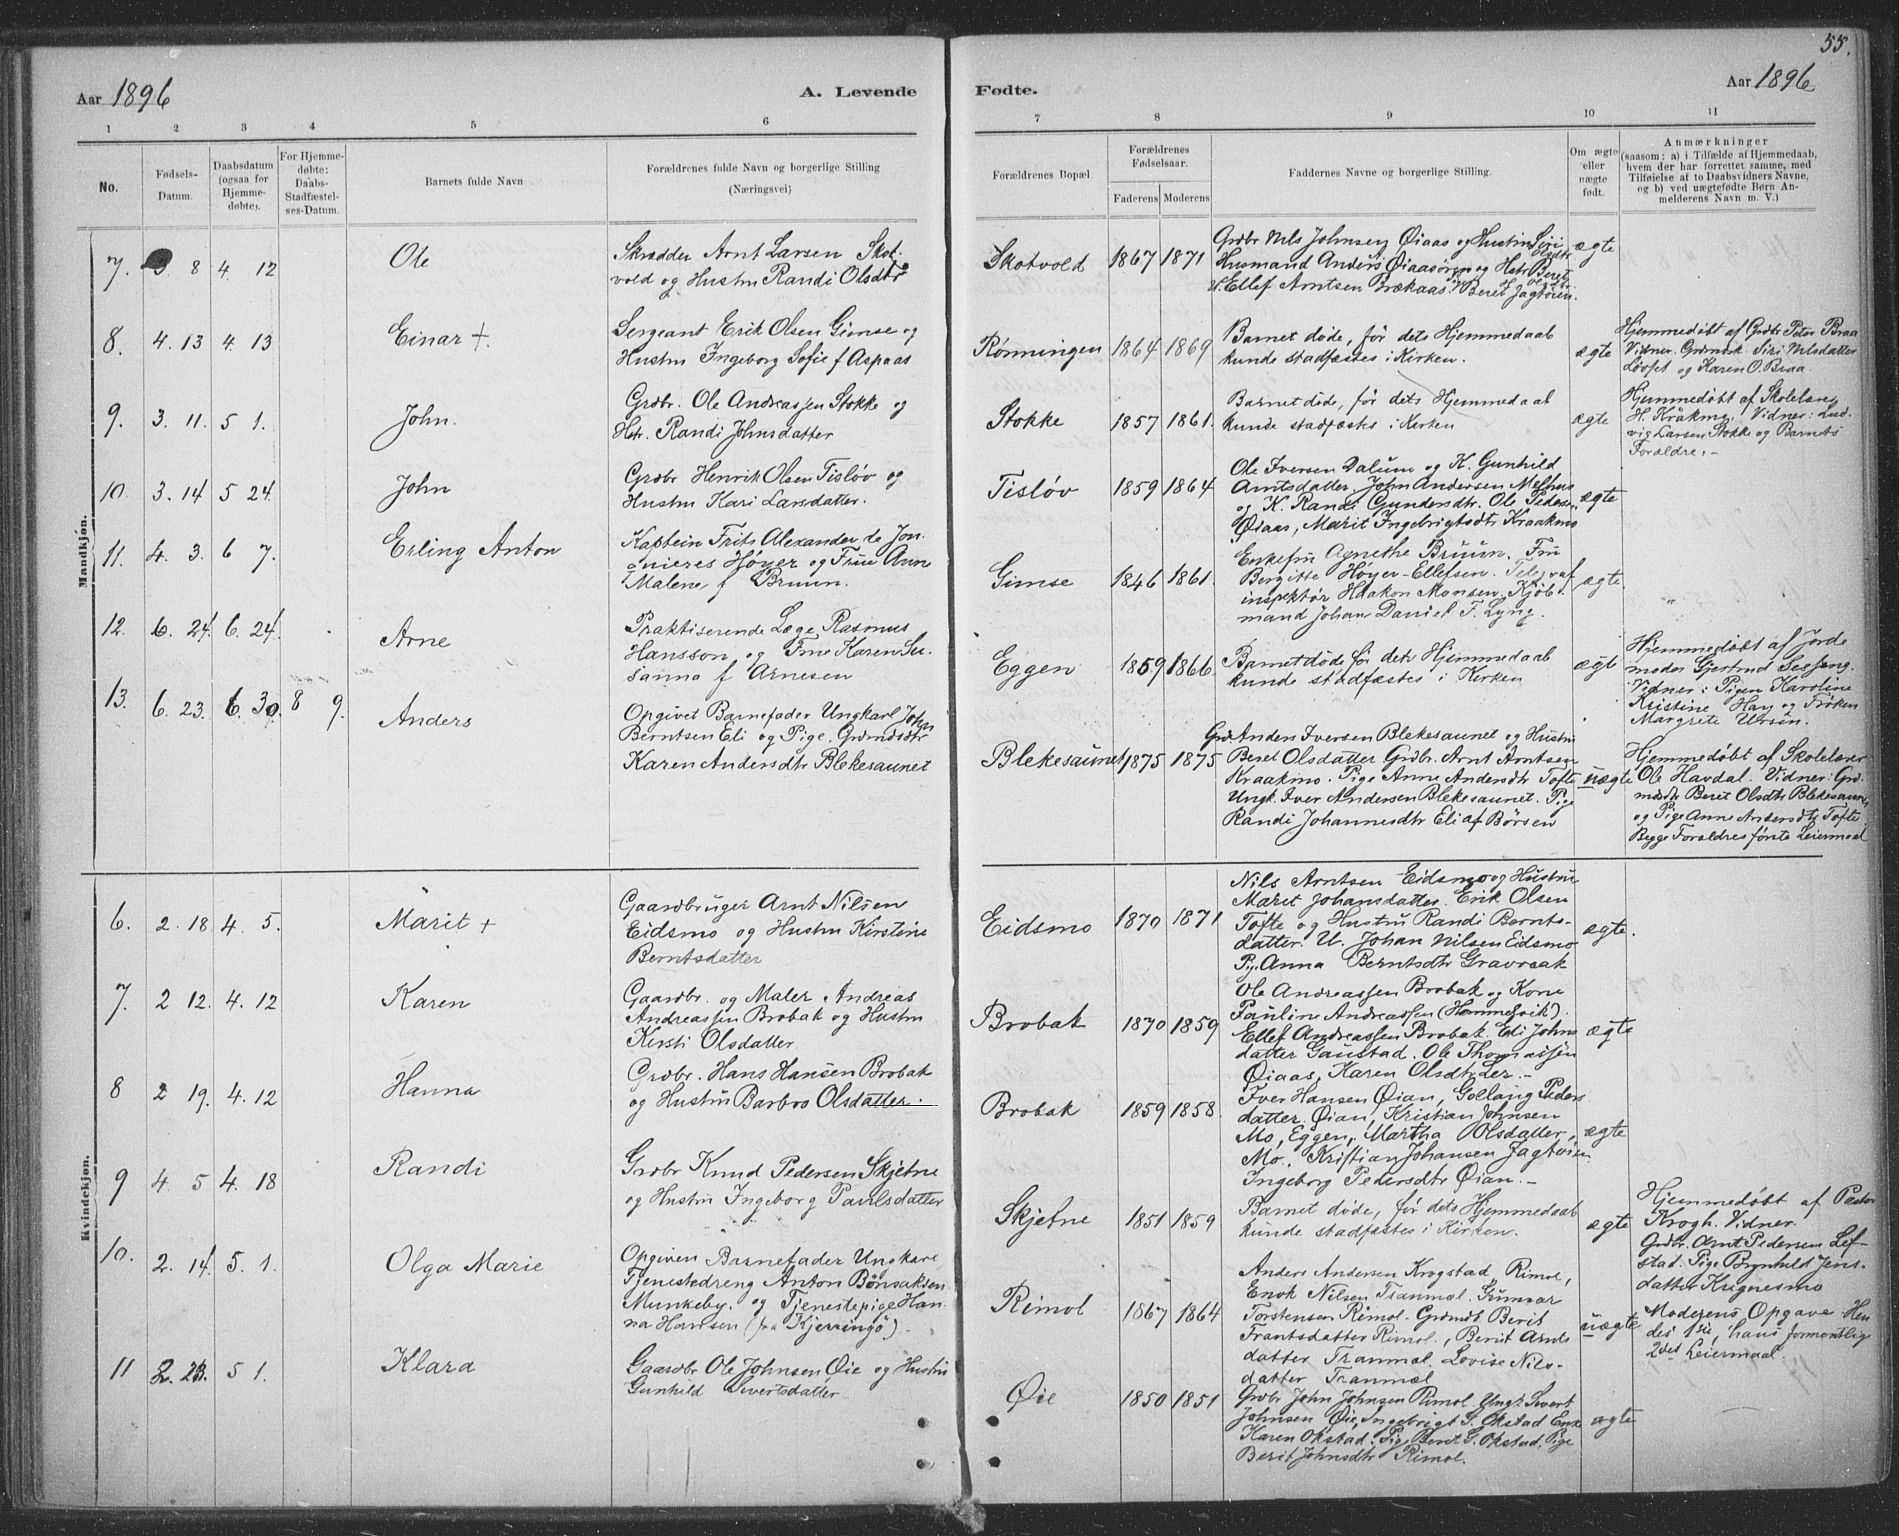 55.
Aar 1896
A. Levende
Fødte.
Aar 1896
1 2 3 4 5 6 7 8 9 10 11
No.
Fødsels-
Datum.
Daabsdatum
(ogsaa for
Hjemme-
døbte).
For Hjemme-
døbte:
Daabs-
Stadfæstel-
ses-Datum.
Barnets fulde Navn
Forældrenes fulde Navn og borgerlige Stilling
(Næringsvei)
Forældrenes Bopæl.
Forældrenes
Fødselsaar.
Faderens Moderens
Faddernes Navne og borgerlige Stilling.
Om ægte
eller
uægte
født.
Anmærkninger
(saasom: a) i Tilfælde af Hjemmedaab,
hvem der har forrettet samme, med
Tilføielse af to Daabsvidners Navne,
og b) ved uægtefødte Børn An-
melderens Navn m. V.)
Mandkjøn.
7. 3 8 4 12 Ole
Skrædder Arnt Larsen Skot-
vold og Hustru Randi Olsdtr
Skotvold 1867 1871
Grdbr Nils Johnsen Øiaas og Hustru Siri Olsdtr
Husmand Anders Øiaasøren og Hstr Beret
U. Ellef Arntsen Brækaas Beret Jagtøien.
ægte
8. 4. 13 4. 13 Einar +.
Sergeant Erik Olsen Gimse og
Hustru Ingeborg Sofie f Aspaas
Rønningen 1864 1869
Barnet døde, før dets Hjemmedaab
kunde stadfæstes i Kirken.
ægte
Hjemmedøbt af Grdbr Peter Braa
Vidner. Grdmdsk. Siri Nilsdatter
Løvset og Karen O. Braa
9. 3. 11. 5 1. John.
Grdbr. Ole Andreassen Stokke og
Hstr. Randi Johnsdatter
Stokke 1857 1861.
Barnet døde, før dets Hjemmedaab
kunde stadfæstes i Kirken
ægte
Hjemmedøbt af Skolelærer
H. Kråkmo. Vidner: Lud-
vig Larsen Stokke og Barnets
Forældre. -
10. 3. 14 5 24. John
Grdbr Henrik Olsen Tisløv og
Hustru Kari Larsdatter.
Tisløv 1859 1864
Ole Iversen Dalum og K. Gunhild
Arntsdatter. John Andersen Melhus
og K. Randi Gundersdtr. Ole Pedersen
Øiaas, Marit Ingebrigtsdtr Kraakmo
ægte
11. 4. 3. 6 7. Erling Anton
Kaptein Frits Alexander de Jon-
quieres Høyer og Frue Ann
Malene f Bruun.
Gimse 1846 1861.
Enkefru Agnethe Bruun. Fru
Birgitte Høyer-Ellefsen. Telegraf
inspektør Haakon Monsen. Kjøb-
mand Johan Daniel F. Lyng.
ægte.
12. 6. 24. 6. 24. Arne
Praktiserende Læge Rasmus
Hansson og Frue Karen Su-
sanna f Arnesen
Eggen 1859 1866.
Barnet døde før dets Hjemmedaab
kunde stadfæstes i Kirken
ægte
Hjemmedøbt af Jorde
moder Gjertrud Sesseng.
Vidner: Pigen Karoline
Kristine Hay og Frøken
Margrete Ursin.
13. 6. 23. 6. 30. 8 9. Anders
Opgivet Barnefader Ungkarl John
Berntsen Eli og Pige. Grdmdsdtr
Karen Andersdtr Blekesaunet
Blekesaunet 1875 1875
Grdbr Anders Iversen Blekesaunet og Hustru
Beret Olsdatter Grdbr. Arnt Arntsen
Kraakmo. Pige Anne Andersdtr Tofte
Ungk. Iver Andersen Blekesaunet. Pige
Randi Johannesdtr Eli af Børsen
uægte
Hjemmedøbt af Skolelærer
Ole Havdal. Vidner: Grd
mdsk Beret Olsdtr Blekesaunet
og Pige Anne Andersdtr Tofte.
Begge Forældres første Leiermaal
Kvindekjøn.
6. 2. 18. 4. 5. Marit +
Gaardbruger Arnt Nilsen
Eidsmo og Hustru Kirstine
Berntsdatter
Eidsmo 1870 1871
Nils Arntsen Eidsmo og Hustru
Marit Johansdatter. Erik Olsen
Tofte og Hustru Randi Bernts-
datter. U. Johan Nilsen Eidsmo
P. Anna Berntsdtr Gravraak
ægte.
7. 2 12. 4. 12 Karen
Gaardbr. og Maler Andreas
Andreassen Brobak og Hustru
Kersti Olsdatter.
Brobak 1870 1859
Ole Andreassen Brobak og Kone
Pauline Andreassen (Hommelvik).
Ellef Andreassen Brobak. Eli Johns
datter Gaustad. Ole Thomassen
Øiaas, Karen Olsdtr Ler. -
ægte
8 2 19. 4. 12 Hanna
Grdbr. Hans Hansen Brobak
og Hustru Barbro Olsdatter.
Brobak 1859 1858.
Iver Hansen Øian, Gollaug Peders
datter. Øian, Kristian Johnsen
Mo, Eggen, Martha Olsdatter,
Mo. Kristian Johansen Jagtøien.
Ingeborg Pedersdtr Øian. -
ægte
9 4 5 4. 18 Randi
Grdbr Knud Pedersen Skjetne
og Hustru Ingeborg Paulsdatter
Skjetne 1851 1859
Barnet døde, før dets Hjemmedaab
kunde stadfæstes i Kirken.
ægte
Hjemmedøbt af Pastor
Krogh. Vidner.
Grdbr. Arnt Pedersen Lef-
stad. Pige Brynhild Jens-
datter Krignesmo
10. 2. 14. 5. 1. Olga Marie
Opgiven Barnefader Ungkarl
Tjenestedreng Anton Bønsaksen
Munkeby. og Tjenestepige Han-
na Hansen (fra Kjerringø).
Rimol 1867 1864
Anders Andersen Krogstad, Rimol,
Enok Nilsen Tranmæl. Gunvar
Torstensen Rimol. Grdmdk. Berit
Frantsdatter Rimol, Berit Arnts
datter Tranmæl. Lovise Nils-
datter Tranmæl
uægte
Moderens Opgave. Hen
des 1ste, hans formentlig
2det Leiermaal.
11 2. 23. 5 1. Klara
Gaardbr. Ole Johnsen Øie og Hustru
Gunhild Sivertsdatter
Øie 1850 1851
Grdbr John Johnsen Rimol. Ungk. Sivert
Johnsen Øie, Ingebrigt S. Økstad Enke
Karen Økstad. Pige Beret S. Økstad. Pige
Berit Johnsdtr Rimol.
ægte